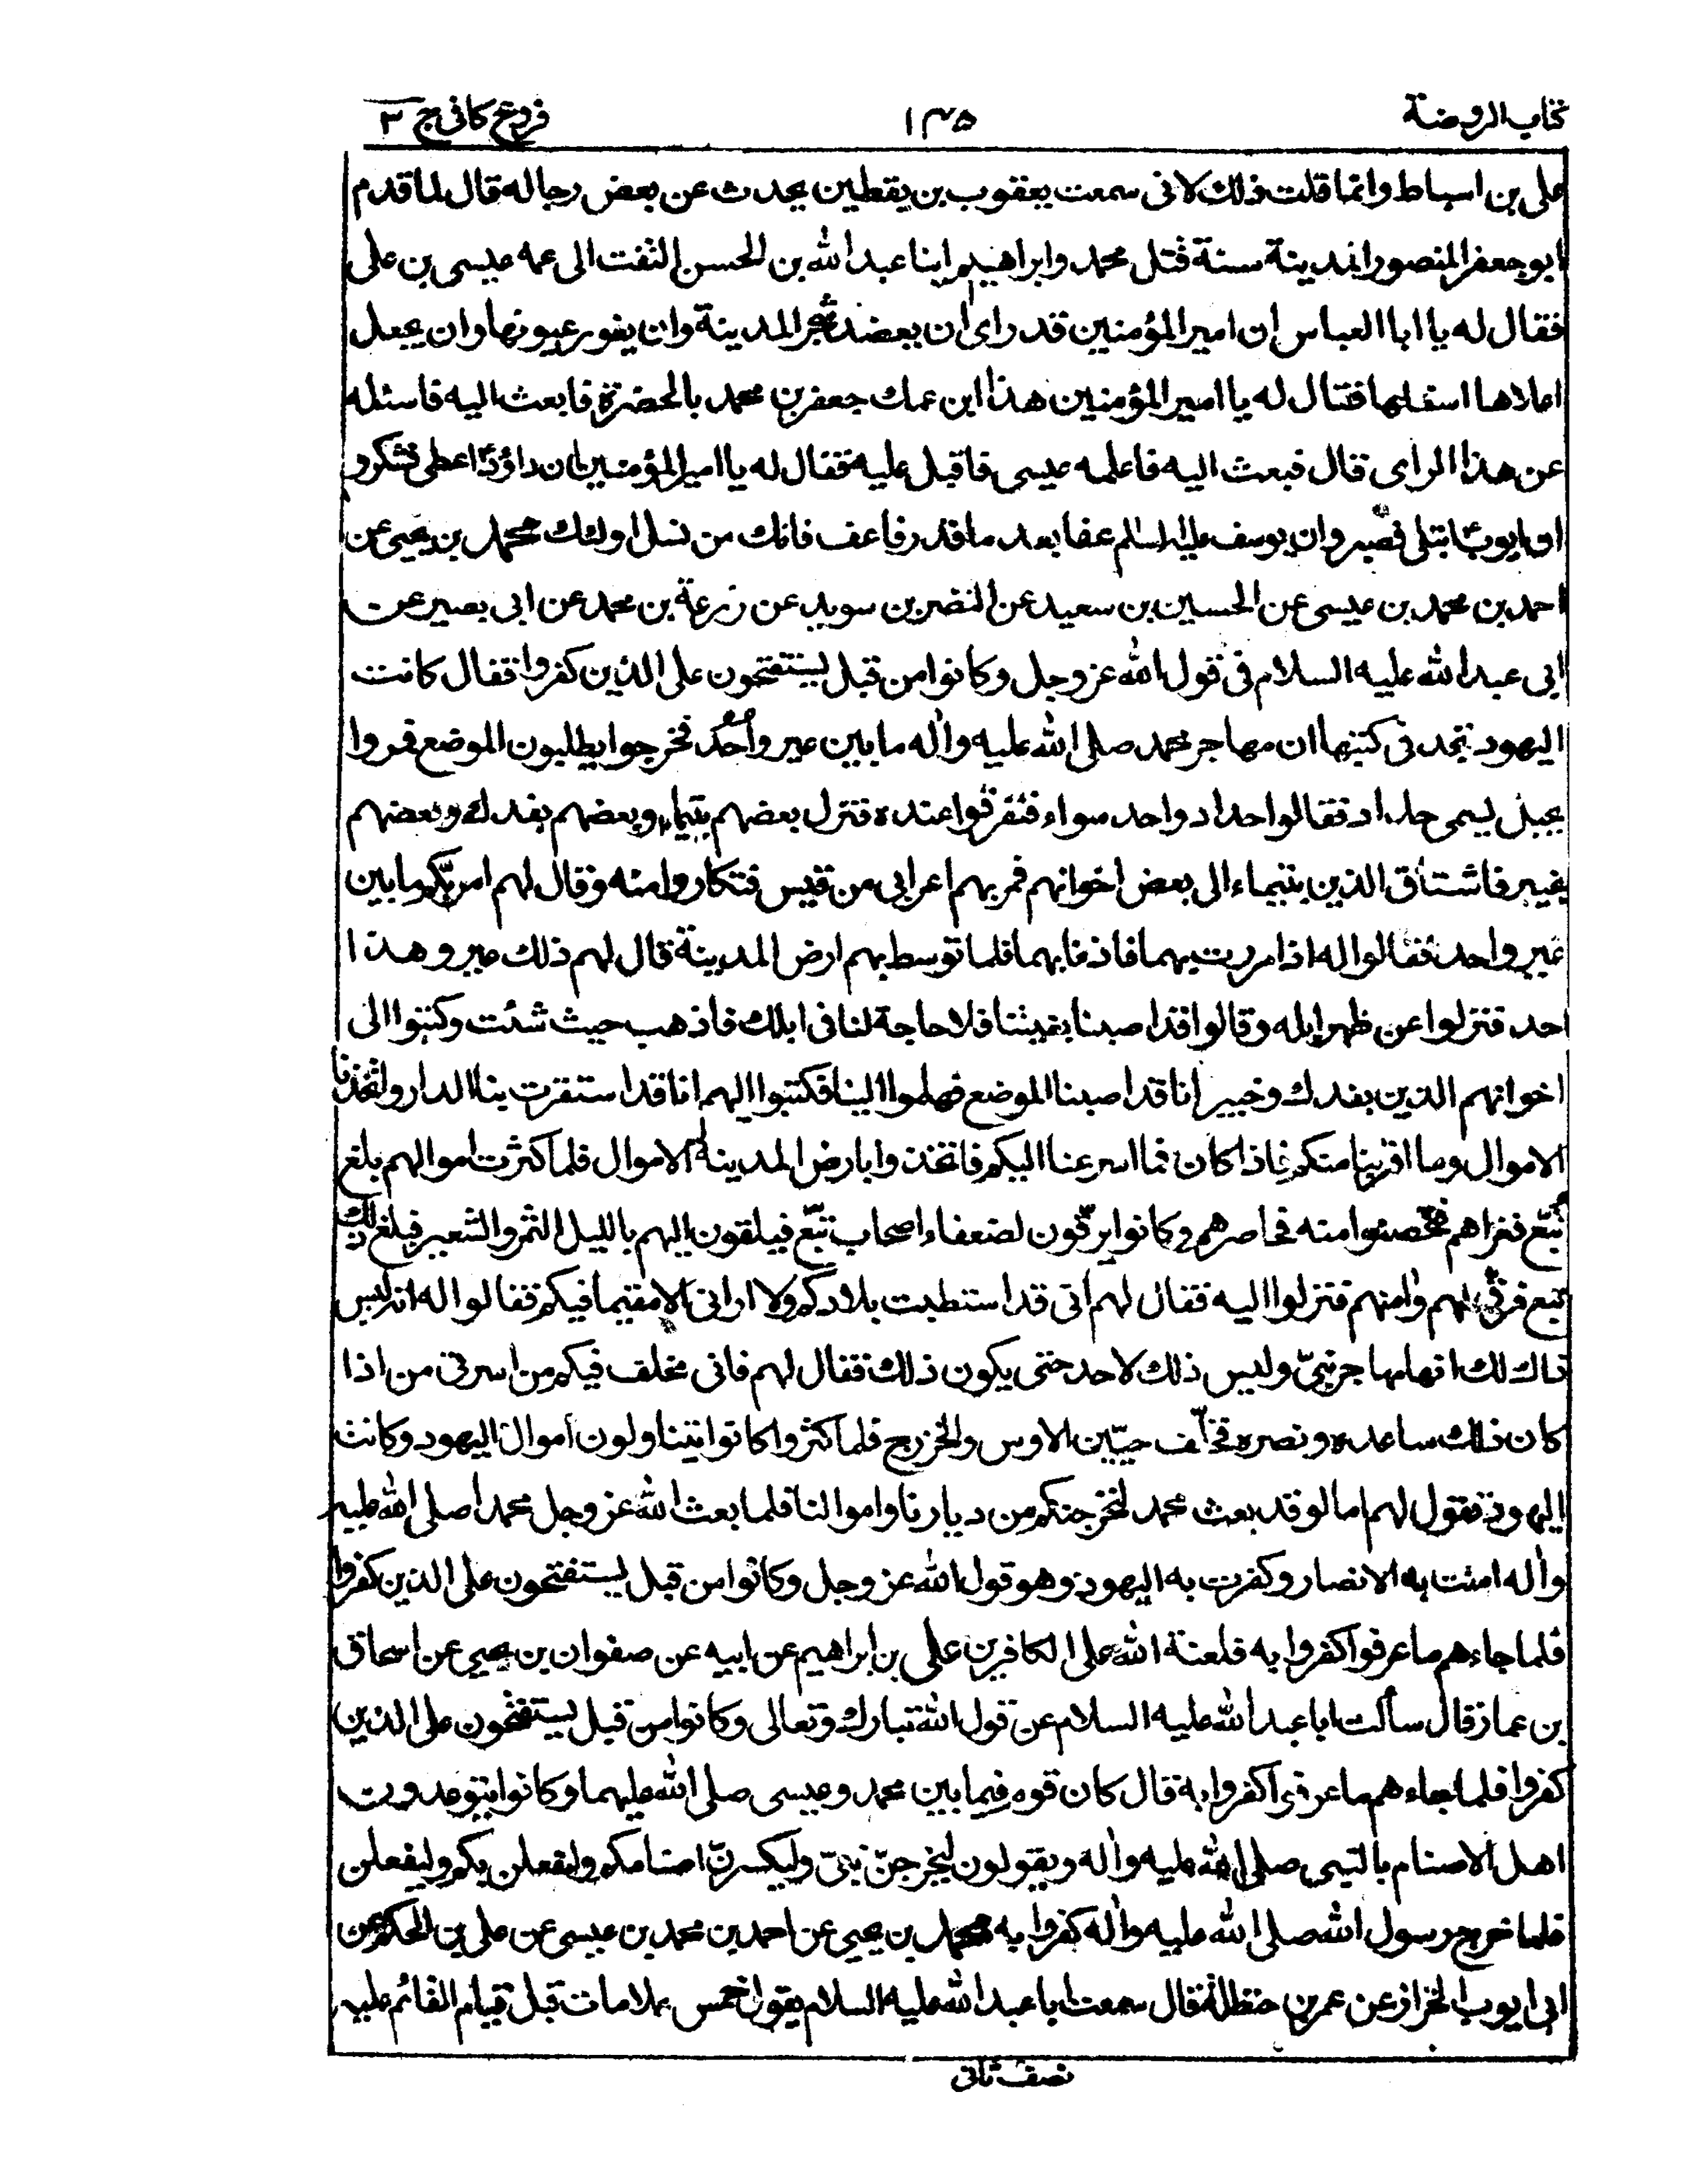 كتاب الروضة ١٤٥ فروع كافى ج ٣
على بن اسباط وانما قلت ذلك لانى سمعت يعقوب بن يقطين يحدث عن بعض رجاله قال لما قدم
ابو جعفر المنصور المدينة سنة قتل محمد وابراهيم ابنا عبد الله بن الحسن التفت الى عمه عيسى بن على
فقال له يا ابا العباس ان امير المؤمنين قد راى ان يعضد شجر المدينة وان يغور عيونها وان يجعل
اعلاها اسفلها فقال له يا امير المؤمنين هذا ابن عمك جعفر بن محمد بالحضرة فابعث اليه فاسئله
عن هذا الراى قال فبعث اليه فاعلمه عيسى فاقبل عليه فقال له يا امير المؤمنين ان داؤدؑ اعطى فشكر و
ان ايوبؑ ابتلى فصبر وان يوسف عليه السلم عفا بعد ما قدر فاعف فانك من نسل اولئك محمد بن يحيى عن
احمد بن محمد بن عيسى عن الحسين بن سعيد عن النضر بن سويد عن زرعة بن محمد عن ابى بصير عن
ابى عبد الله عليه السلام فى قول الله عز وجل وكانوا من قبل يستفتحون على الذين كفروا فقال كانت
اليهود تجد فى كتبها ان مهاجر محمد صلى الله عليه واٰله ما بين عير واُحُد فخرجوا يطلبون الموضع فمروا
بجبل يسمى حداد فقالوا حداد واحد سواء فتفرقوا عنده فنزل بعضهم بتيماء وبعضهم بفدك وبعضهم
بخيبر فاشتاق الذين بتيماء الى بعض اخوانهم فمر بهم اعرابى من قيس فتكاروا منه وقال لهم امر بكم ما بين
عير واحد فقالوا له اذا مررت بهما فاذنا بهما فلما توسط بهم ارض المدينة قال لهم ذلك عير وهذا
احد فنزلوا عن ظهر ابله وقالوا قد اصبنا بغيتنا فلا حاجة لنا فى ابلك فاذهب حيث شئت وكتبوا الى
اخوانهم الذين بفدك وخيبر انا قد اصبنا الموضع فهلموا الينا فكتبوا اليهم انا قد استقرت بنا الدار واتخذنا
الاموال وما اقربنا منكم فاذا كان فما اسرعنا اليكم فاتخذوا بارض المدينة الاموال فلما كثرت اموالهم بلغ
تُبّع فغزاهم فتحصنوا منه فحاصرهم وكانوا يرقّون لضعفاء اصحاب تبّع فيلقون اليهم بالليل التمر والشعير فبلغ ذلك
تبع فرقّ لهم واٰمنهم فنزلوا اليه فقال لهم انى قد استطبت بلادكم ولا ارانى الا مقيما فيكم فقالوا له انه ليس
ذاك لك انها مهاجر نبىّ وليس ذلك لاحد حتى يكون ذلك فقال لهم فانى مخلف فيكم من اسرتى من اذا
كان ذلك ساعده ونصره فخلّف حيّين الاوس والخزرج فلما كثروا كانوا يتناولون اموال اليهود وكانت
اليهود تقول لهم اما لو قد بعث محمد لنخرجنكم من ديارنا واموالنا فلما بعث الله عز وجل محمدا صلى الله عليه
واٰله امنت به الانصار وكفرت به اليهود وهو قول الله عز وجل وكانوا من قبل يستفتحون على الذين كفروا
فلما جاءهم ما عرفوا كفروا به فلعنة الله على الكافرين على بن ابراهيم عن ابيه عن صفوان بن يحيى عن اسحاق
بن عمار قال سألت ابا عبد الله عليه السلام عن قول الله تبارك وتعالى وكانوا من قبل يستفتحون على الذين
كفروا فلما جاءهم ما عرفوا كفروا به قال كان قوم فيما بين محمد وعيسى صلى الله عليهما وكانوا يتوعدون
اهل الاصنام بالنبى صلى الله عليه واٰله ويقولون ليخرجنّ نبىّ وليكسرنّ اصنامكم وليفعلن بكم وليفعلن
فلما خرج رسول الله صلى الله عليه واٰله كفروا به محمد بن يحيى عن احمد بن محمد بن عيسى عن على بن الحكم عن
ابى ايوب الخزاز عن عمر بن حنظلة قال سمعت ابا عبد الله عليه السلام يقول خمس علامات قبل قيام القائم عليه
نصف ثانى